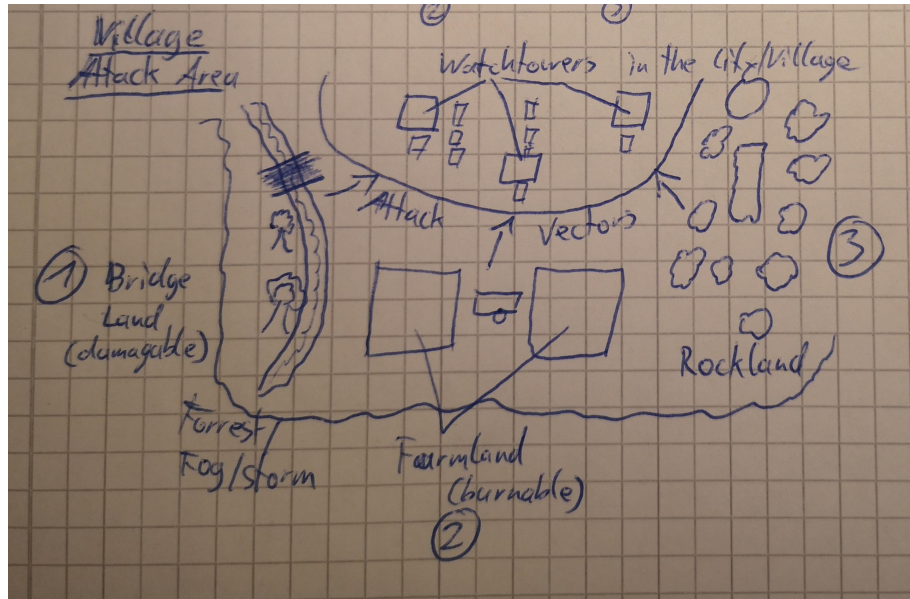 Village
Attack Area
2
3
Watchtowers in the City/Village
Attack
Vectors
1
Bridge
Land
(damagable)
3
Rockland
Forrest
Fog/Storm
Farmland
(burnable)
2